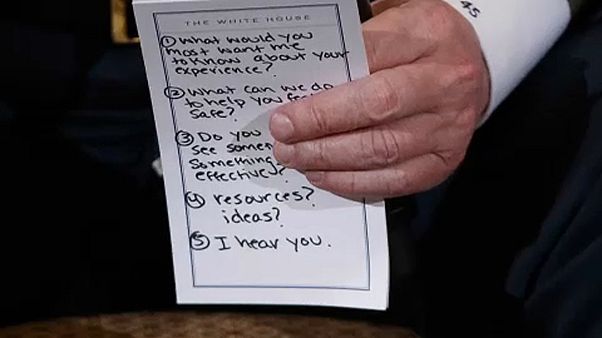 45
THE WHITE HOUSE
① What would you
most want me
to know about your
experience?
② What can we do
to help you feel
safe?
③ Do you
see
something
effective?
④ resources?
ideas?
⑤ I hear you.